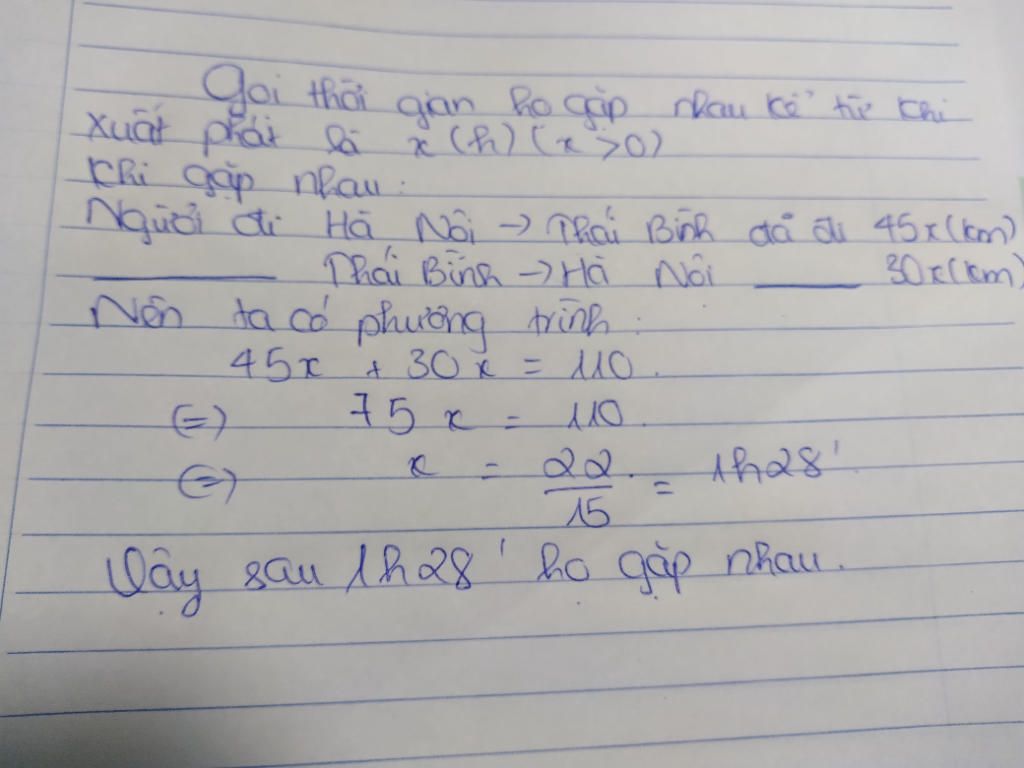 Gọi thời gian họ gặp nhau kể từ khi
xuất phát là x (h) (x > 0)
Khi gặp nhau :
Người đi Hà Nội → Thái Bình đã đi 45x (km)
_____ Thái Bình → Hà Nội _____ 30x (km)
Nên ta có phương trình :
45x + 30x = 110.
(=) 75x = 110.
(=) x = 22/15 = 1h28'.
Vậy sau 1h28' họ gặp nhau.